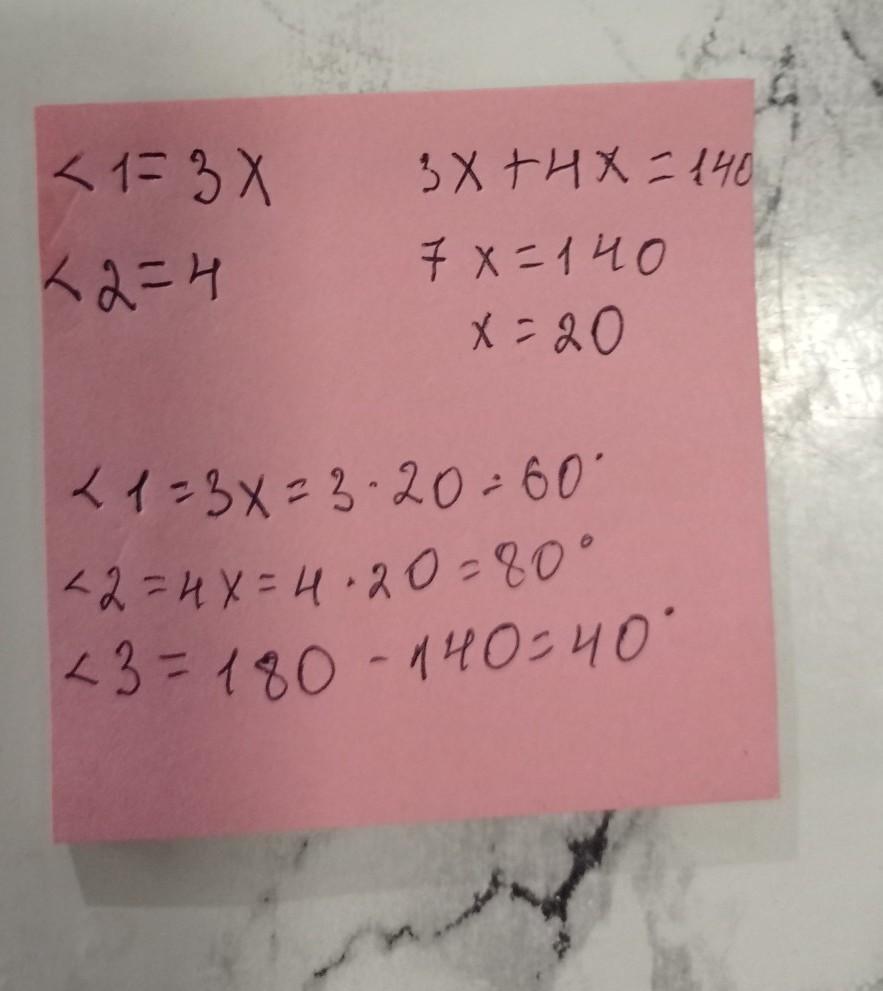 <1=3x 3x+4x=140
<2=4 7x=140
x=20
<1=3x=3·20=60°
<2=4x=4·20=80°
<3=180-140=40°